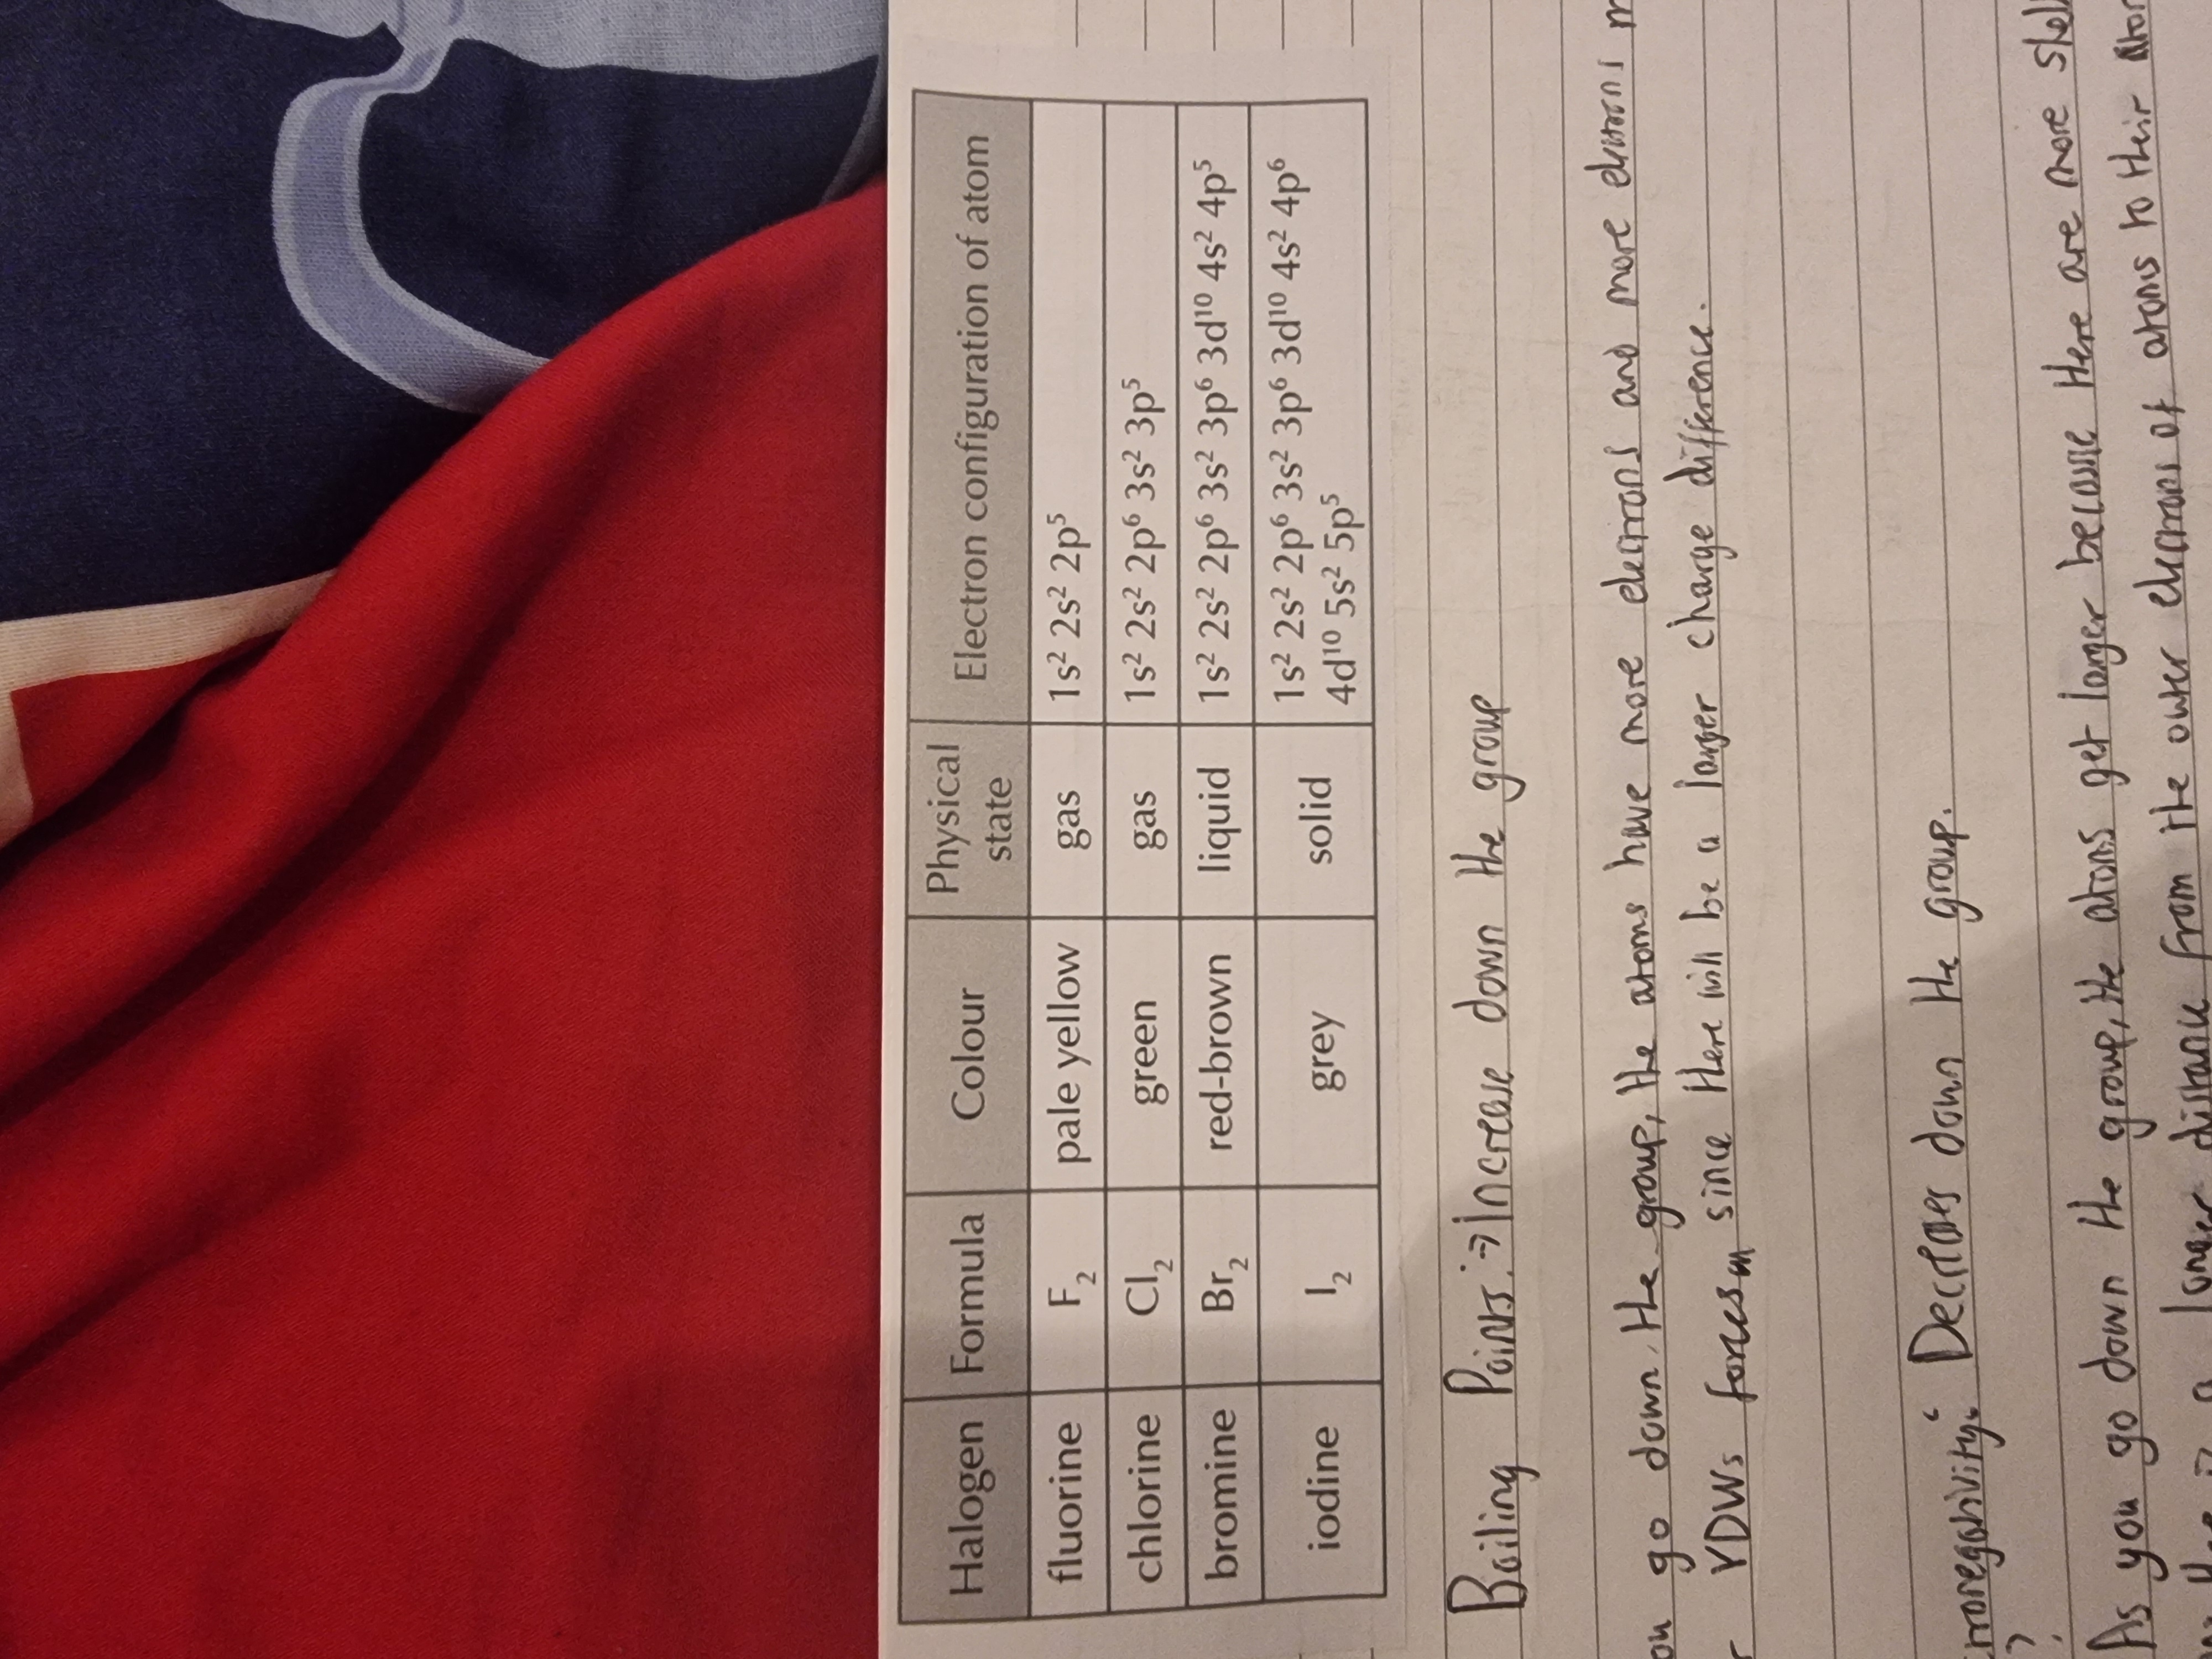 Halogen Formula Colour Physical state Electron configuration of atom
fluorine F₂ pale yellow gas 1s² 2s² 2p⁵
chlorine Cl₂ green gas 1s² 2s² 2p⁶ 3s² 3p⁵
bromine Br₂ red-brown liquid 1s² 2s² 2p⁶ 3s² 3p⁶ 3d¹⁰ 4s² 4p⁵
iodine I₂ grey solid 1s² 2s² 2p⁶ 3s² 3p⁶ 3d¹⁰ 4s² 4p⁶
4d¹⁰ 5s² 5p⁵
Boiling Points: → Increase down the group
go down the group, the atoms have more electrons and more electrons
VDWs forces since there will be a larger charge difference.
Decreases down the group.
?
As you go down the group, the atoms get larger because there are more
distance from the outer electrons of atoms to their